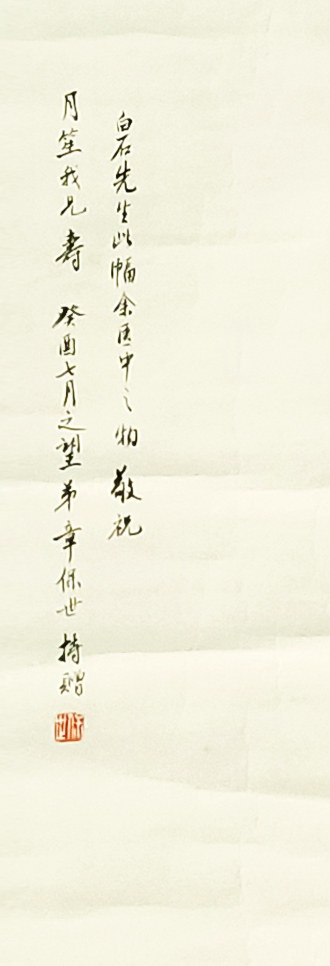 白石先生此幅余匧中之物敬祝
月笙我兄壽 癸酉七月之望弟章保世持贈
保世